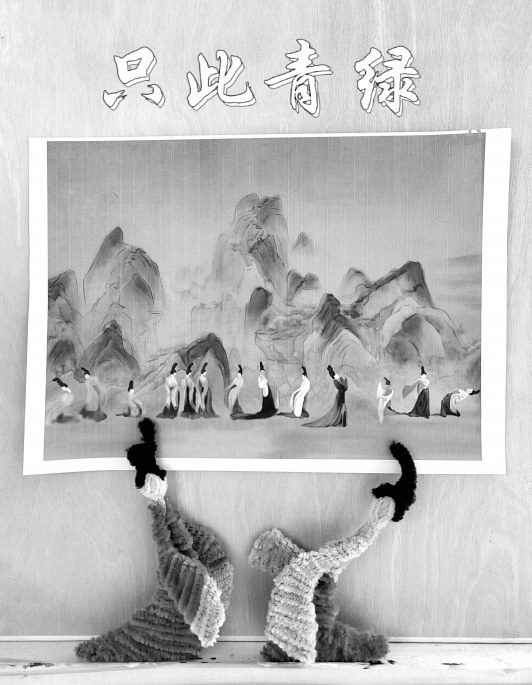 只此青绿